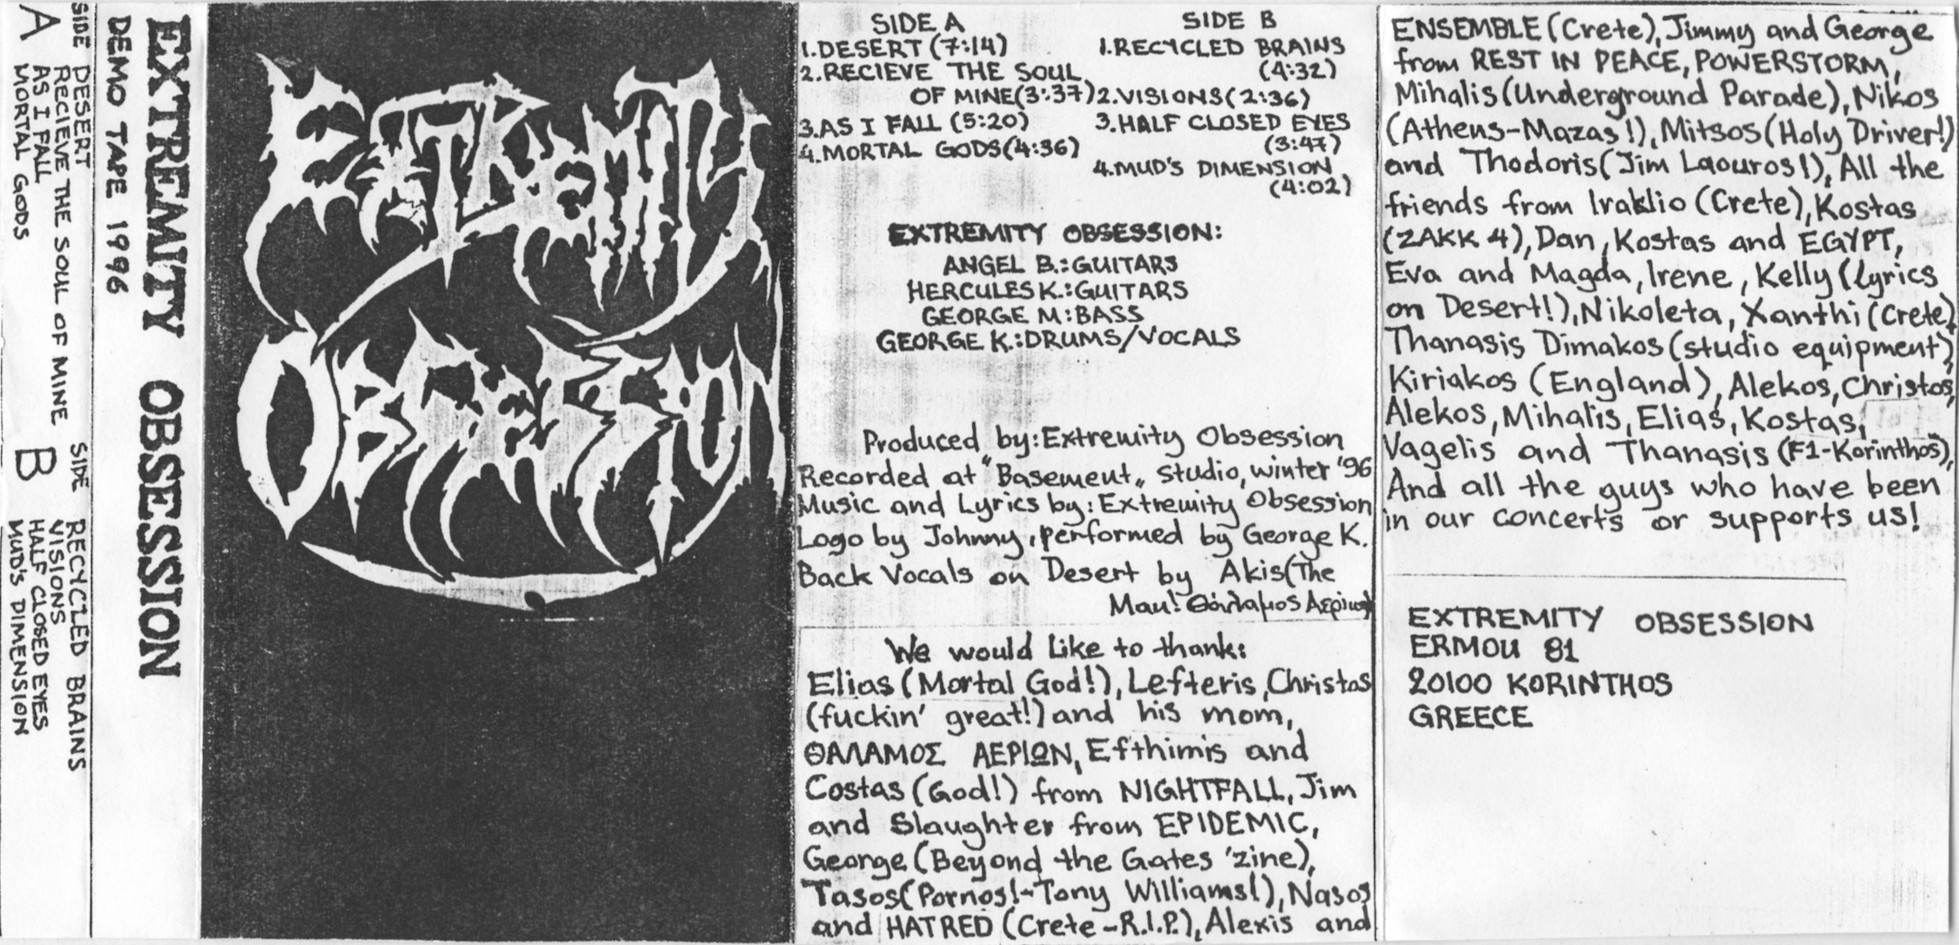 SIDE A
DESERT
RECIEVE THE SOUL OF MINE
AS I FALL
MORTAL GODS
SIDE B
RECYCLED BRAINS
VISIONS
HALF CLOSED EYES
MUD'S DIMENSION
EXTREMITY OBSESSION
DEMO TAPE 1996
EXTREMITY
OBSESSION
SIDE A
1.DESERT (7:14)
2.RECIEVE THE SOUL
OF MINE(3:37)
3.AS I FALL (5:20)
4.MORTAL GODS(4:36)
SIDE B
1.RECYCLED BRAINS
(4:32)
2.VISIONS(2:36)
3.HALF CLOSED EYES
(3:47)
4.MUD'S DIMENSION
(4:02)
EXTREMITY OBSESSION:
ANGEL B.:GUITARS
HERCULES K.:GUITARS
GEORGE M:BASS
GEORGE K.:DRUMS/VOCALS
Produced by:Extremity Obsession
Recorded at "Basement„ studio, winter '96
Music and Lyrics by: Extremity Obsession
Logo by Johnny, performed by George K.
Back Vocals on Desert by Akis(The
Man! Θάλαμος
We would like to thank:
Elias (Mortal God!), Lefteris, Christos
(fuckin' great!) and his mom,
ΘΑΛΑΜΟΣ ΑΕΡΙΩΝ, Efthimis and
Costas (God!) from NIGHTFALL, Jim
and Slaughter from EPIDEMIC,
George (Beyond the Gates 'zine),
Tasos(Pornos!-Tony Williams!), Nasos
and HATRED (Crete-R.I.P.), Alexis and
ENSEMBLE (Crete), Jimmy and George
from REST IN PEACE, POWERSTORM,
Mihalis (Underground Parade), Nikos
(Athens-Mazas!), Mitsos (Holy Driver!)
and Thodoris (Jim Laouros!), All the
friends from Iraklio (Crete), Kostas
(ZAKK 4), Dan, Kostas and EGYPT,
Eva and Magda, Irene, Kelly (lyrics
on Desert!), Nikoleta, Xanthi (Crete)
Thanasis Dimakos (studio equipment)
Kiriakos (England), Alekos, Christos,
Alekos, Mihalis, Elias, Kostas,
Vagelis and Thanasis (F1-Korinthos),
And all the guys who have been
in our concerts or supports us!
EXTREMITY OBSESSION
ERMOU 81
20100 KORINTHOS
GREECE